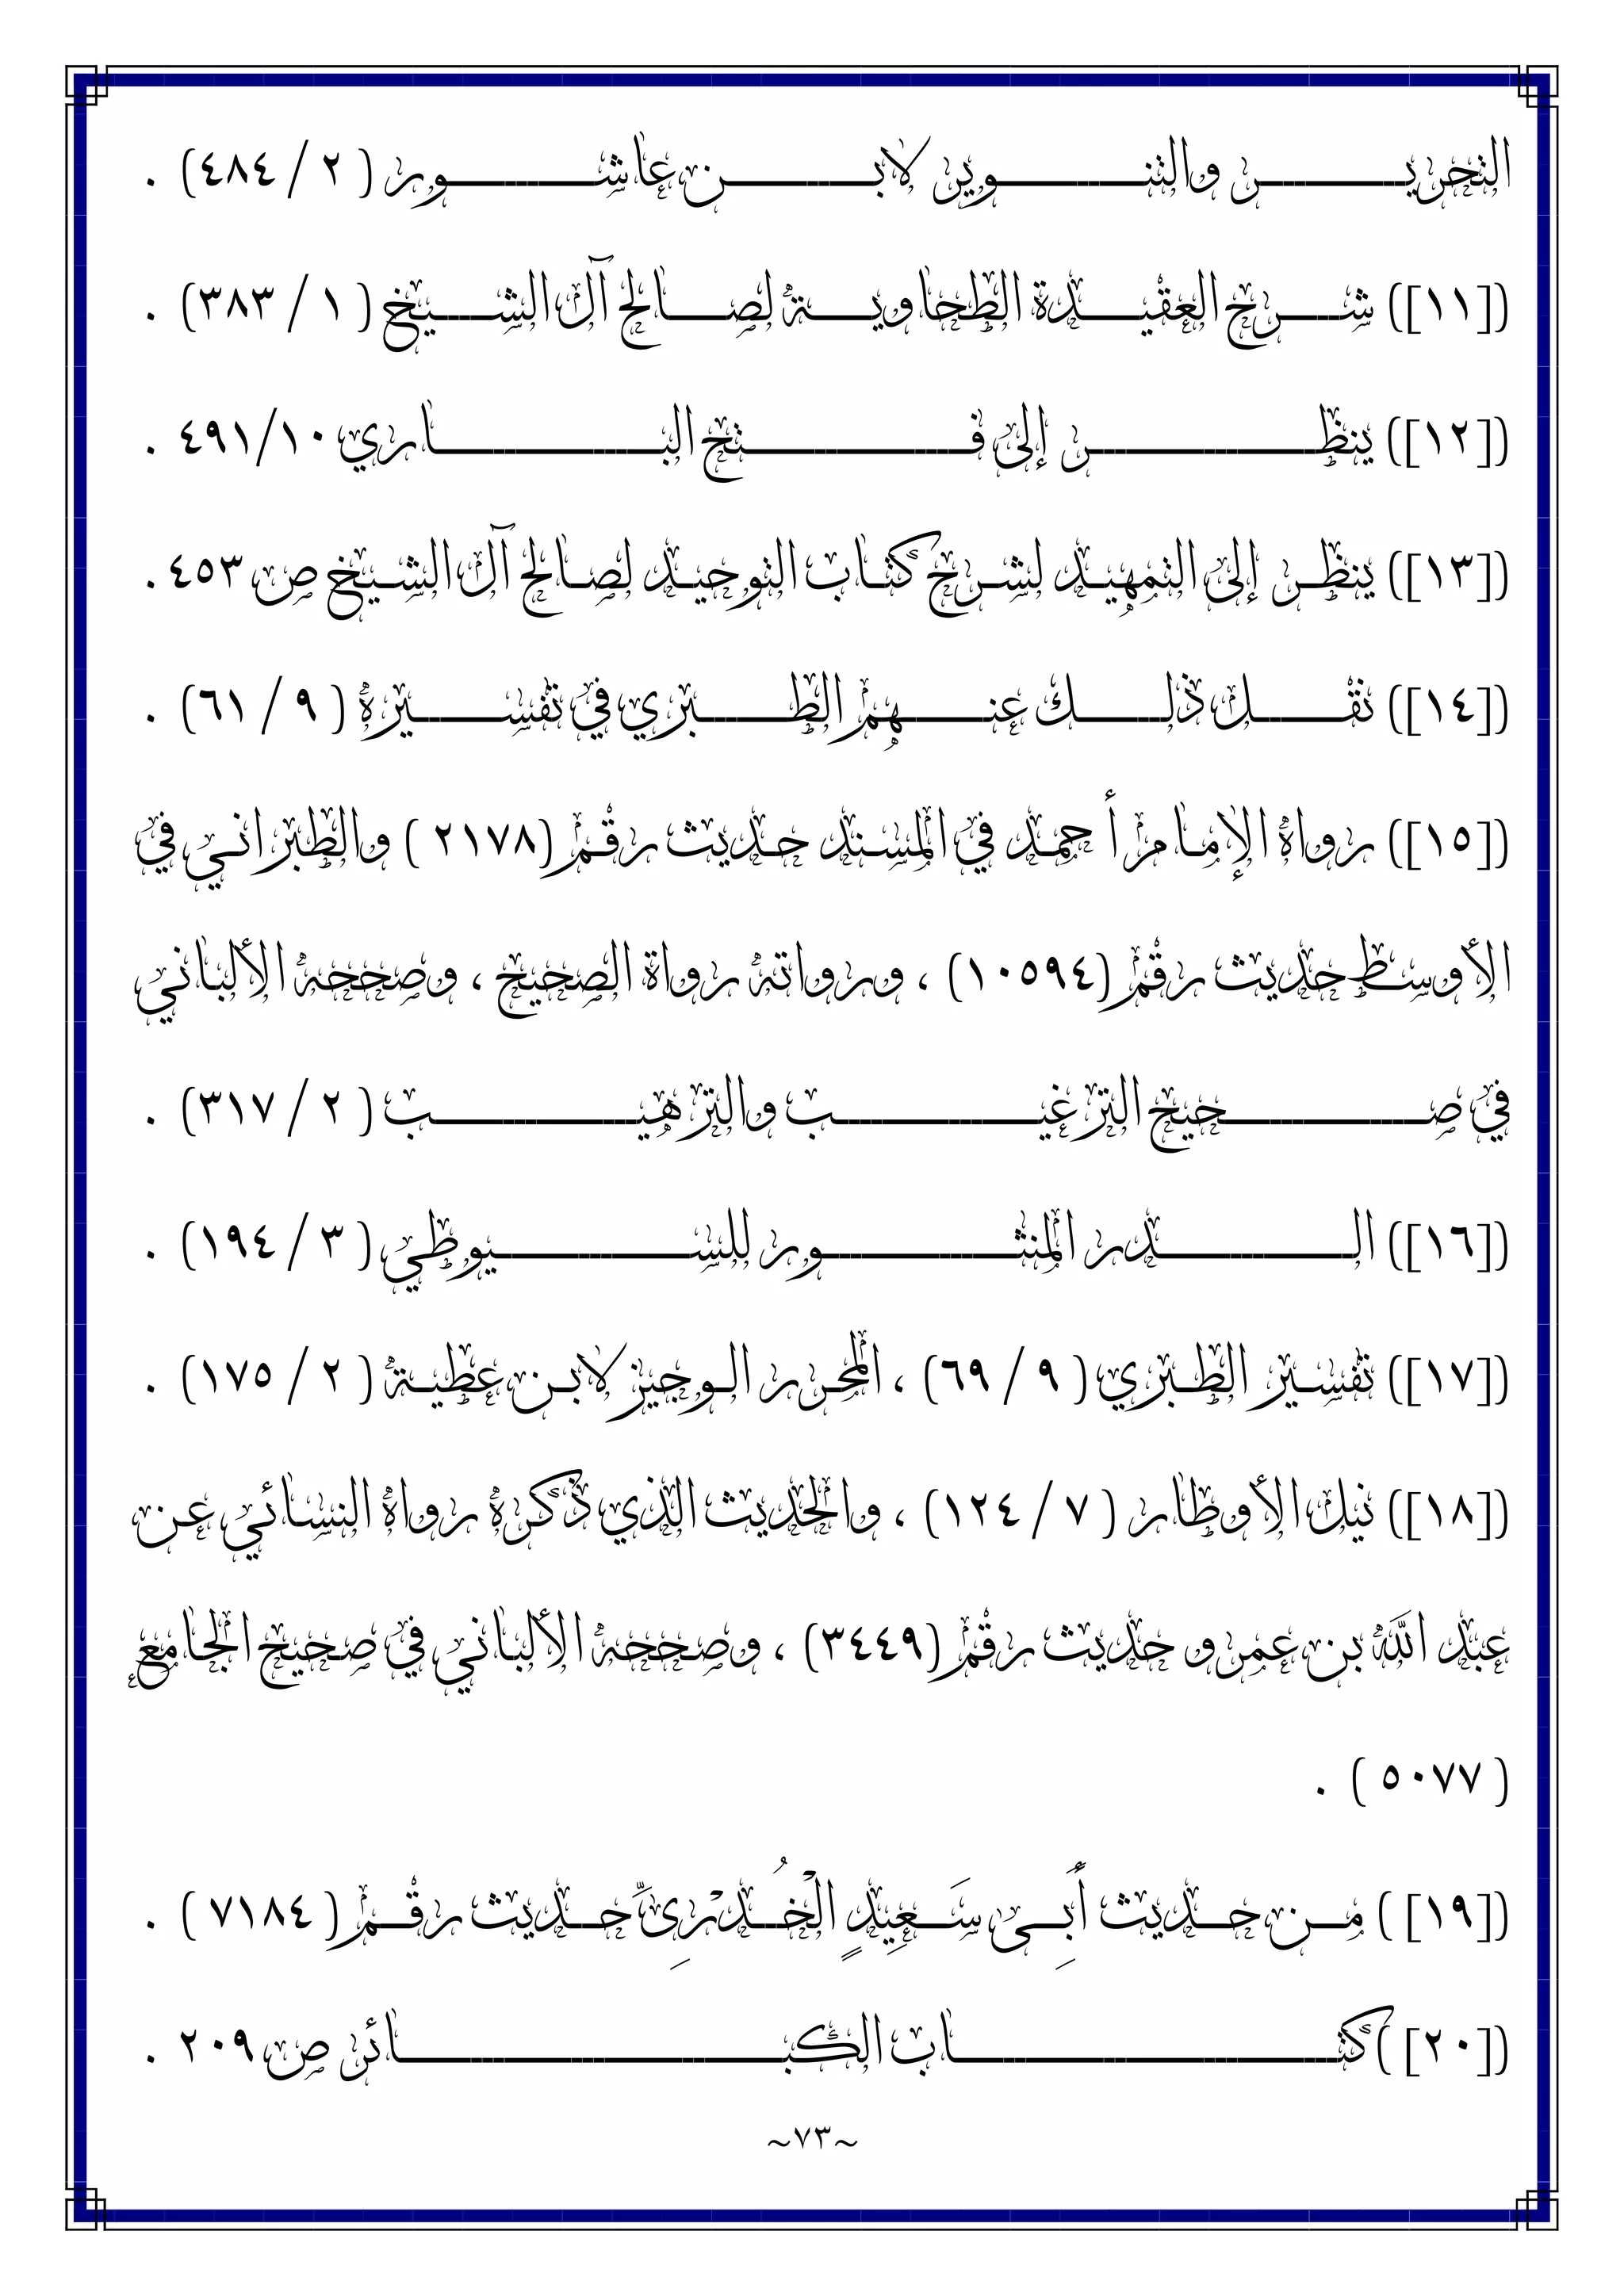 التحرير والتنوير لابن عاشور ( ٢ / ٤٨٤) .
([١١]) شرح العقيدة الطحاوية لصالح آل الشيخ ( ١ / ٣٨٣) .
([١٢]) ينظر إلى فتح الباري ٤٩١/١٠ .
([١٣]) ينظر إلى التمهيد لشرح كتاب التوحيد لصالح آل الشيخ ص ٤٥٣ .
([١٤]) نقل ذلك عنهم الطبري في تفسيره ( ٩ / ٦١) .
([١٥]) رواه الإمام أحمد في المسند حديث رقم (٢١٧٨ ) والطبراني في
الأوسط حديث رقم (١٠٥٩٤) ، ورواته رواة الصحيح ، وصححه الألباني
في صحيح الترغيب والترهيب ( ٢ / ٣١٧) .
([١٦]) الدر المنثور للسيوطي ( ٣ / ١٩٤) .
([١٧]) تفسير الطبري ( ٩ / ٦٩) ، المحرر الوجيز لابن عطية ( ٢ / ١٧٥) .
([١٨]) نيل الأوطار ( ٧ / ١٢٤) ، والحديث الذي ذكره رواه النسائي عن
عبد الله بن عمرو حديث رقم (٣٤٤٩) ، وصححه الألباني في صحيح الجامع
( ٥٠٧٧ ) .
([١٩] ) من حديث أَبِى سَعِيدٍ الْخُدْرِىِّ حديث رقم ( ٧١٨٤ ) .
([٢٠] )كتاب الكبائر ص ٢٠٩ .
~٧٣~